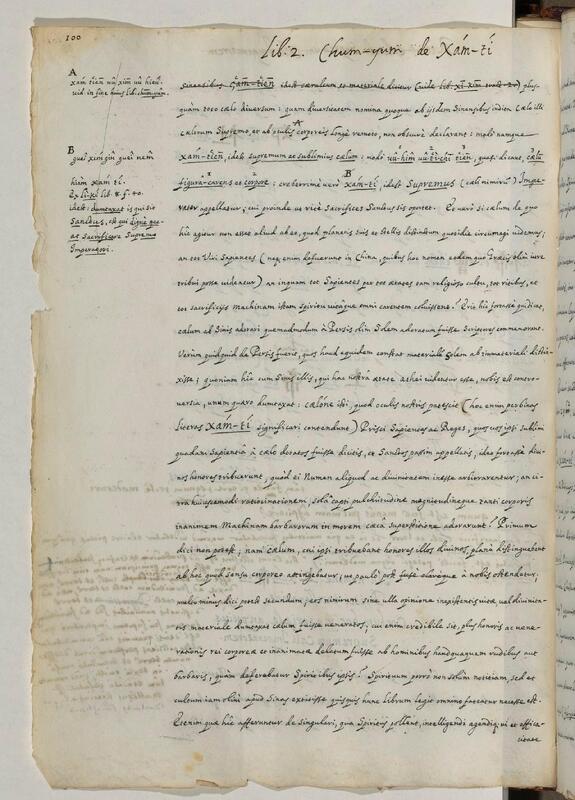 100
Lib. 2. Chum-yum de Xám-tí
A
xám tiēn
vid. in fine huius lib. chum-yum.
B
guei nem
hiam xám tí.
lib. 8. f. 40.
idest: dumtaxat is qui sit
Sanctus, est qui dignè que-
at sacrificare Supremo
Imperatori.
Sinensibus çam-tiēn idest cæruleum et materiale dicitur (vide lib. xi kim) plus-
quàm toto cælo diversum: quam diversitatem nomina quoque ab ijsdem Sinensibus indita Cælo illi
cælorum Supremo, et ab oculis corporeis longè remoto, non obscurè declarant: modò namque
xám-tiēn, idest supremum ac sublimius cælum: modò vû-hîm vû-tí-chi tiēn, quasi dicas, cælũ
figurâ carens et corpore: creberrimè verò xám-tí, idest Supremus (cæli nimirũ) Impe-
rator appellatur; cui proinde ut ritè sacrifices Sanctus sis oportet. At verò si cælum de quo
hîc agitur non esset aliud ab eo, quod planetis suis et stellis distinctum quotidie circumagi videmus;
an tot Viri Sapientes (neque enim defuerunt in China, quibus hoc nomen eodem quo Græcis olim iure
tribui posse videatur) an inquam tot Sapientes per tot ætates tam religioso cultu, tot ritibus, et
tot sacrificijs Machinam istam spiritu vitâque omni carentem coluissent? Quis hîc fortasse quidem,
cælum ab Sinis adorari quemadmodum à Persis olim Solem adoratum fuisse Scriptores commemorant.
Verùm quidquid de Persis fuerit, quos haud equidem constat materialẽ Solem ab immateriali distin-
xisse; quoniam hîc cum Sinis illis, qui hac nostrâ ætate athei videntur esse, nobis est contro-
versia, unum quæro dumtaxat: cælóne isti, quod oculis nostris patescit (hoc enim per binas
literas Xám-tí significari contendunt) Prisci Sapientes ac Reges, quos vos ipsi sublimi
quadam Sapientiâ à cælo donatos fuisse dicitis, et Sanctos passim appellatis, ideo fortasse divi-
nos honores tribuerunt, quòd ei Numen aliquod ac divinitatem inesse arbitrarentur; an ci-
tra huiusmodi ratiocinationem, solâ capti pulchritudine magnitudineque tanti corporis
inanimem Machinam barbarorum in morem cæca superstitione adorarunt? Primum
dici non potest; nam cælum, cui ipsi tribuebant honores illos divinos, planè distinguebant
ab hoc quod sensu corporeo attingebatur, ut paulò post fusè claréque à nobis ostendetur.
multo minùs dici potest secundum; eos nimirum sine ulla opinione inexistentis vitæ, vel divinita-
tis materiale dumtaxat cælum fuisse veneratos; cui enim credibile sit, plus honoris ac vene-
rationis rei corporeæ et inanimatæ delatum fuisse ab hominibus haudquaquam rudibus aut
barbaris, quàm deferebatur Spiritibus ipsis? Spirituum porrò non solùm notitiam, sed et
cultum iam olim apud Sinas extitisse quisquis hunc Librum legit omnino fateatur necesse est.
Etenim quæ hîc afferuntur de singulari, qua Spiritus pollent, intelligendi agendique vi et effica-
citate